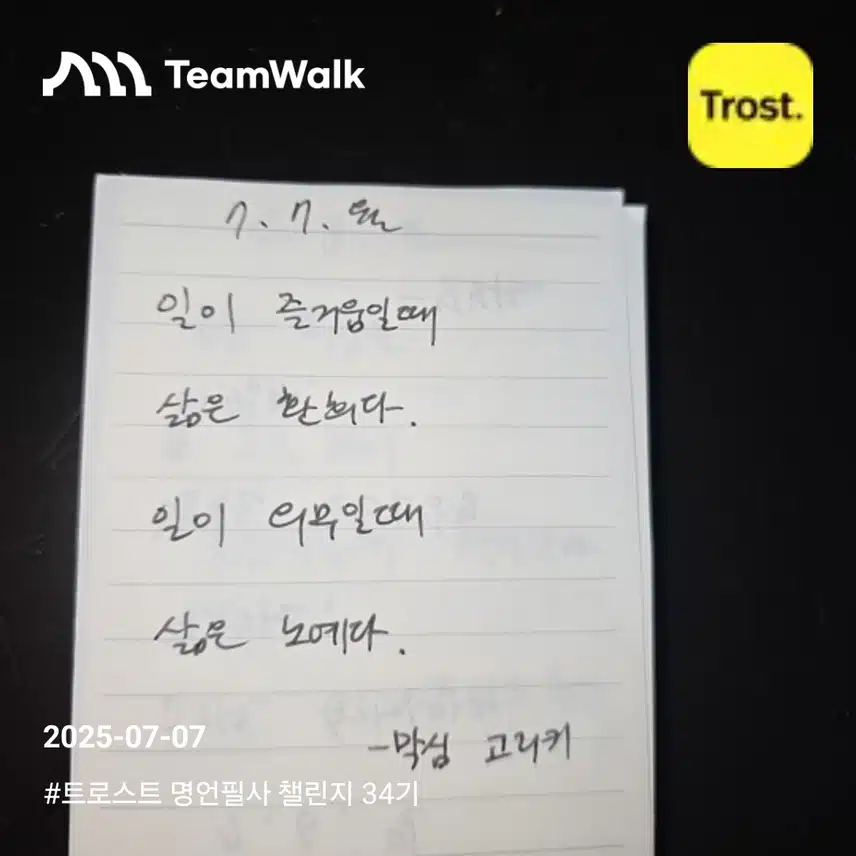 TeamWalk
Trost.
7. 7. 월
일이 즐거움일때
삶은 환희다.
일이 의무일때
삶은 노예다.
-막심 고리키
2025-07-07
#트로스트 명언필사 챌린지 34기